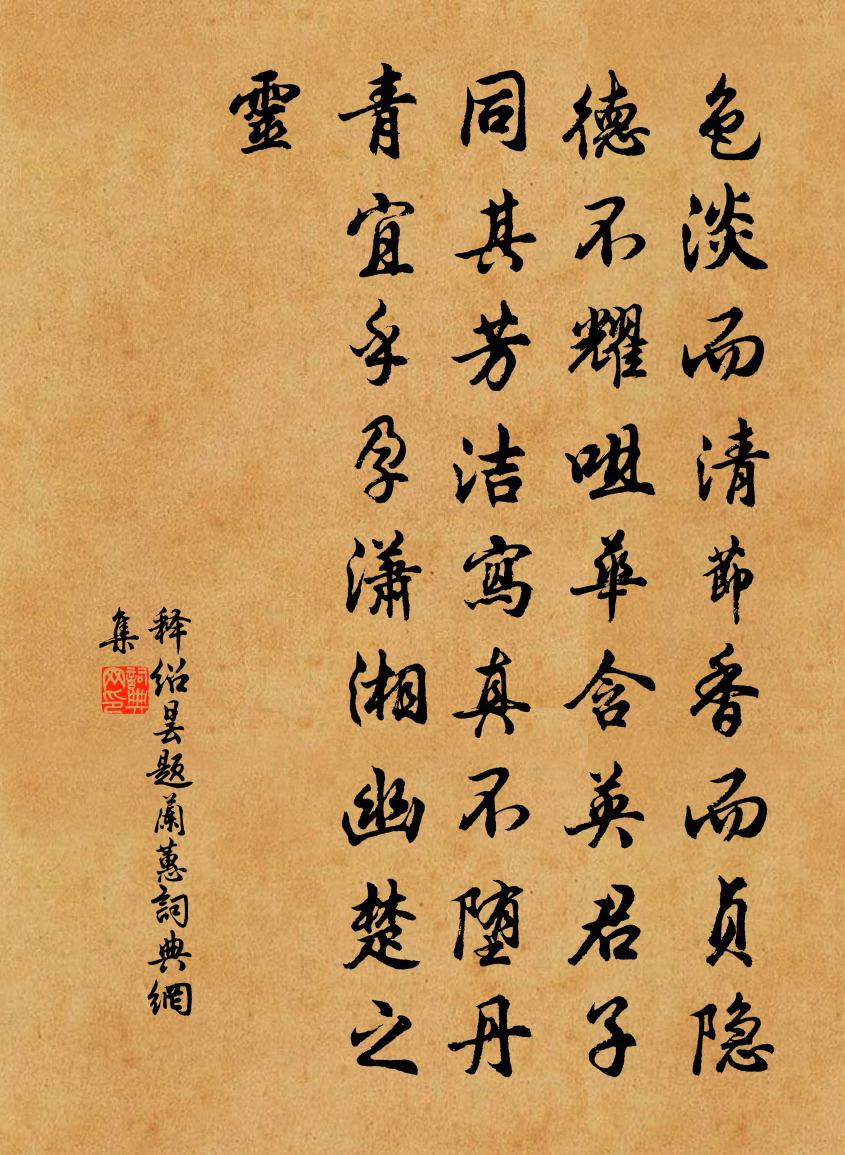 色淡而清節香而贞隐
德不耀咀華含英君子
同其芳洁寫真不堕丹
青宜乎孕瀟湘幽楚之
靈
释绍昙题蘭蕙詞典網
集
詞典
网印